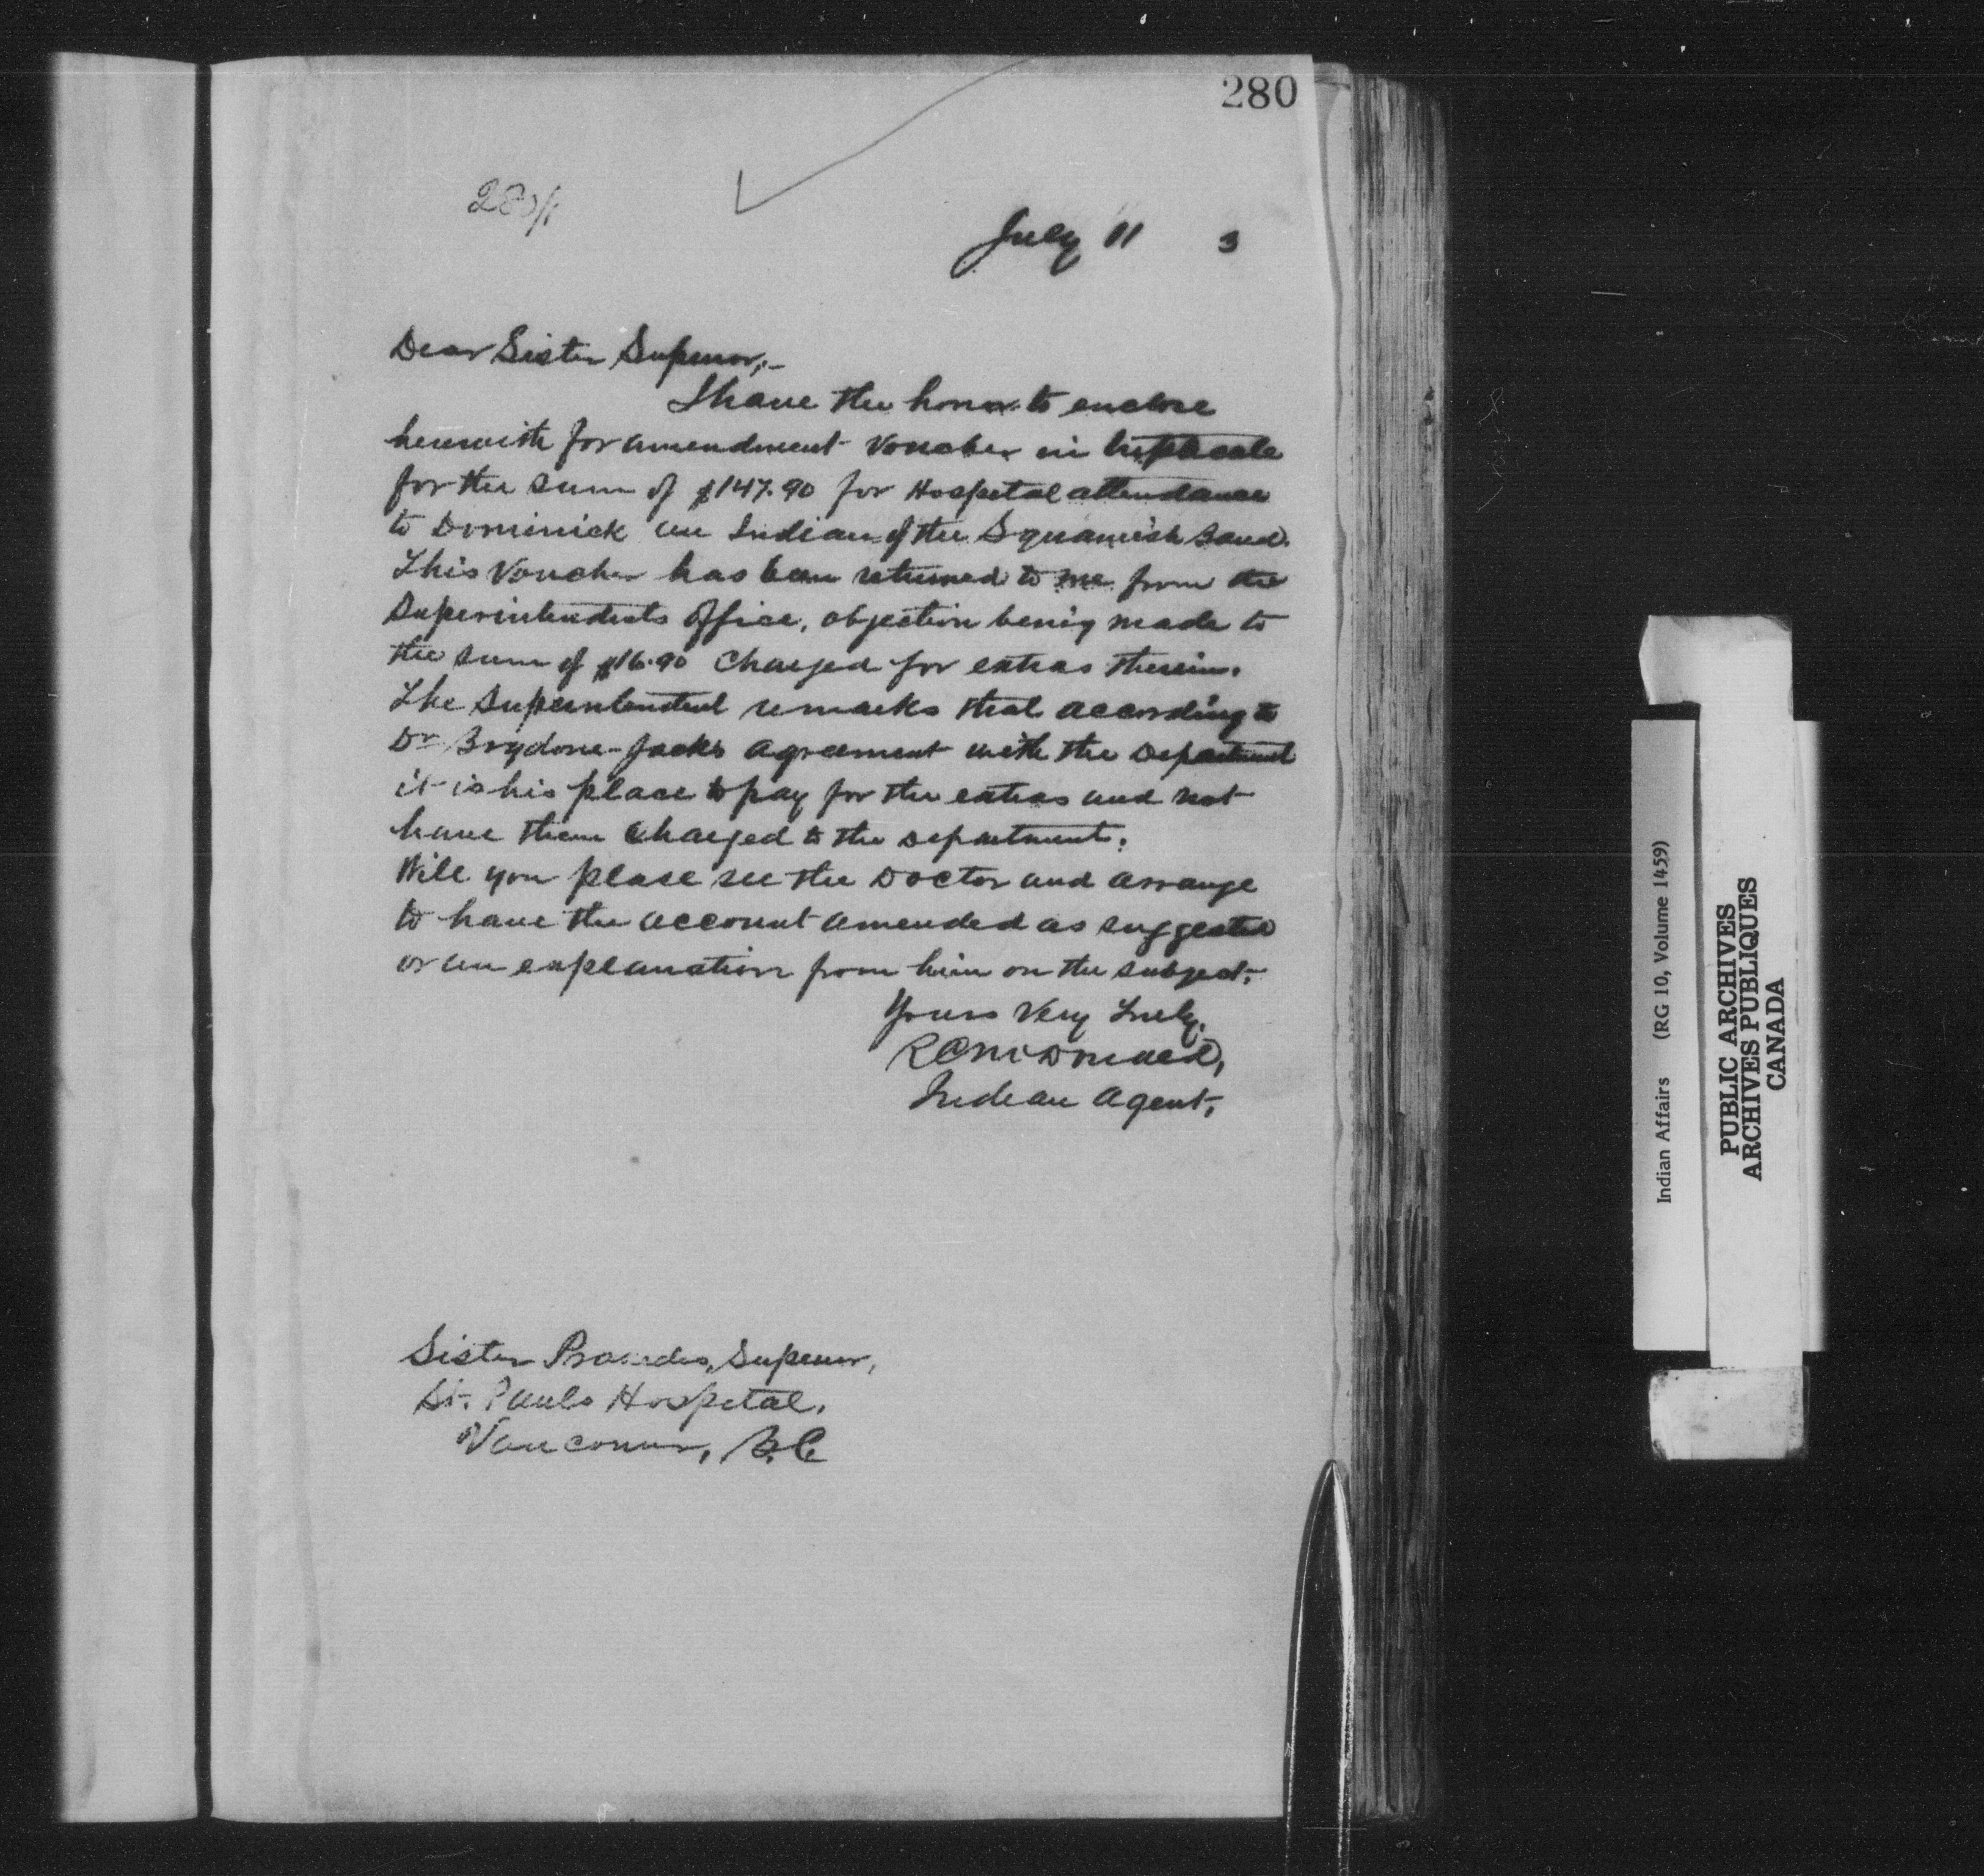 280
280/1
July 11 3
Dear Sister Superior;-
I have the honor to enclose
herewith for amendment voucher in triplicate
for the sum of $147.90 for Hospital attendance
to Dominick an Indian of the Squamish Band.
This Voucher has been returned to me from the
Superintendents Office, objection being made to
the sum of $16.90 charged for extras therein.
The Superintendent remarks that according to
Dr Brydone-Jacks agreement with the Department
it is his place to pay for the extras and not
have them charged to the Department.
Will you please see the Doctor and arrange
to have the account amended as suggested
or an explanation from him on the subject.
Yours Very Truly,
R C McDonald,
Indian Agent.
Sister Superior,
St. Pauls Hospital,
Vancouver, B.C
Indian Affairs (RG 10, Volume 1459)
PUBLIC ARCHIVES
ARCHIVES PUBLIQUES
CANADA